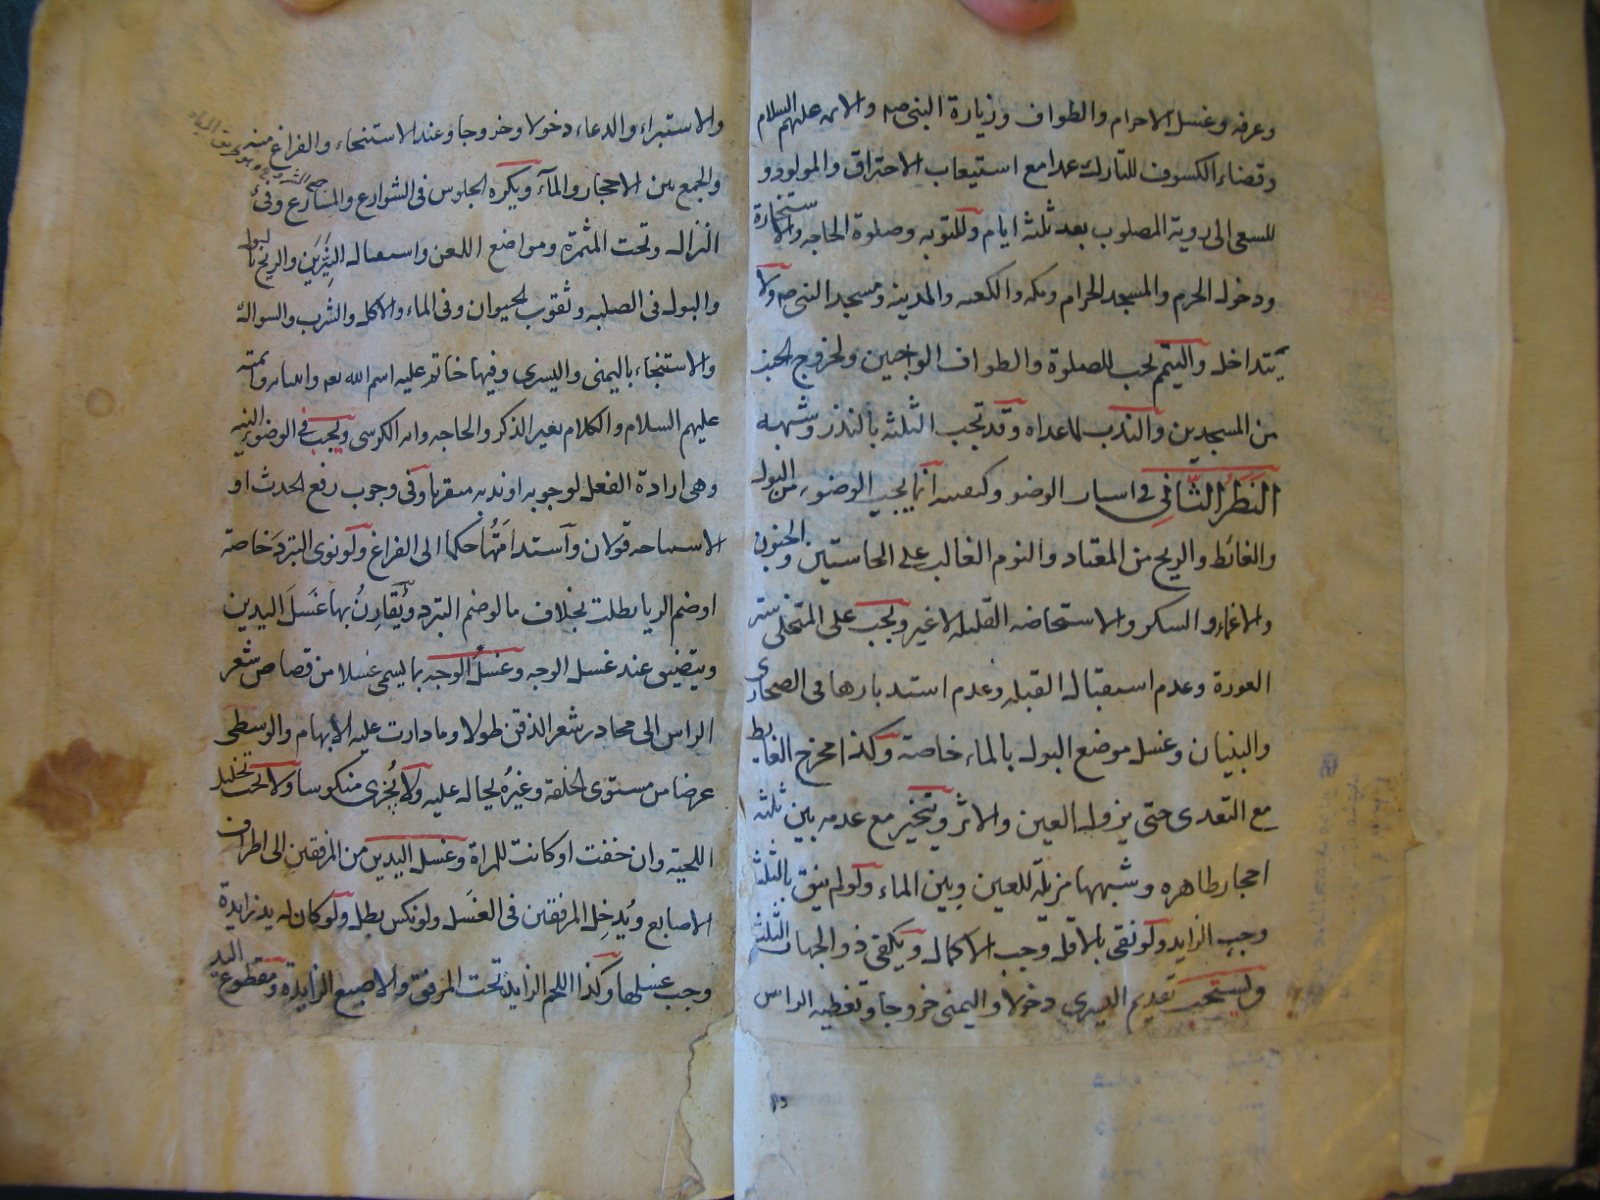 وعرفه وغسل الاحرام والطواف وزيارة النبى صه والائمه عليهم السلام
وقضاء الكسوف للتارك عمدا مع استيعاب الاحتراق والمولود و
للسعى الى روية المصلوب بعد ثلثة ايام وللتوبه وصلوة الحاجه والاستخارة
ودخول الحرم والمسجد الحرام ومكه والكعبه والمدينه ومسجد النبى صه ولا
يتداخل والتيمم يجب للصلوة والطواف الواجبين ولخروج الجنب
من المسجدين والندب لما عداه وقد تجب الثلثه بالنذر وشبهه
النظر الثانى فى اسباب الوضو وكيفيته انما يجب الوضوء من البول
والغائط والريح من المعتاد والنوم الغالب على الحاستين والجنون
والاغماء والسكر والاستحاضه القليله لا غير ويجب على المتخلى ستر
العورة وعدم استقبال القبله وعدم استدبارها فى الصحارى
والبنيان وغسل موضع البول بالماء خاصة وكذا مخرج الغايط
مع التعدى حتى يزول العين والاثر ويتخير مع عدمه بين ثلثة
احجار طاهره وشبهها مزيلة للعين وبين الماء ولو لم ينق بالثلثة
وجب الزايد ولو نقى بالاقل وجب الاكمال ويكفى ذو الجهات الثلث
ويستحب تقديم اليسرى دخولا واليمنى خروجا وتغطيه الراس
والاستبراء والدعاء دخولا وخروجا وعند الاستنجاء والفراغ منه
والجمع بين الاحجار والمآء ويكره الجلوس فى الشوارع والمشارع وفىء
النزال وتحت المثمرة ومواضع اللعن واستقبال النيرين والريح بالبول
والبول فى الصلبه وثقوب الحيوان وفى الماء والاكل والشرب والسواك
والاستنجاء باليمنى واليسرى وفيها خاتم عليه اسم الله تعم وانبيائه وائمته
عليهم السلام والكلام بغير الذكر والحاجه وايه الكرسى ويجب فى الوضوء النيه
وهى ارادة الفعل لوجوبه او ندبه متقربا وفى وجوب رفع الحدث او
الاستباحه قولان واستدامتها حكما الى الفراغ ولو نوى التبرد خاصة
او ضم الريا بطلت بخلاف ما لو ضم التبرد ويقارن بها غسل اليدين
ويتضيق عند غسل الوجه وغسل الوجه بما يسمى غسلا من قصاص شعر
الراس الى محادر شعر الذقن طولا وما دارت عليه الابهام والوسطى
عرضا من مستوى الخلقه وغيره يحال عليه ولا يجزى منكوسا ولا يجب تخليل
اللحية وان خفت او كانت للمراة وغسل اليدين من المرفقين الى اطراف
الاصابع ويدخل المرفقين فى الغسل ولو نكس بطل ولو كان له يد زايدة
وجب غسلها وكذا اللحم الزايد تحت المرفق والاصبع الزايدة ومقطوع اليد